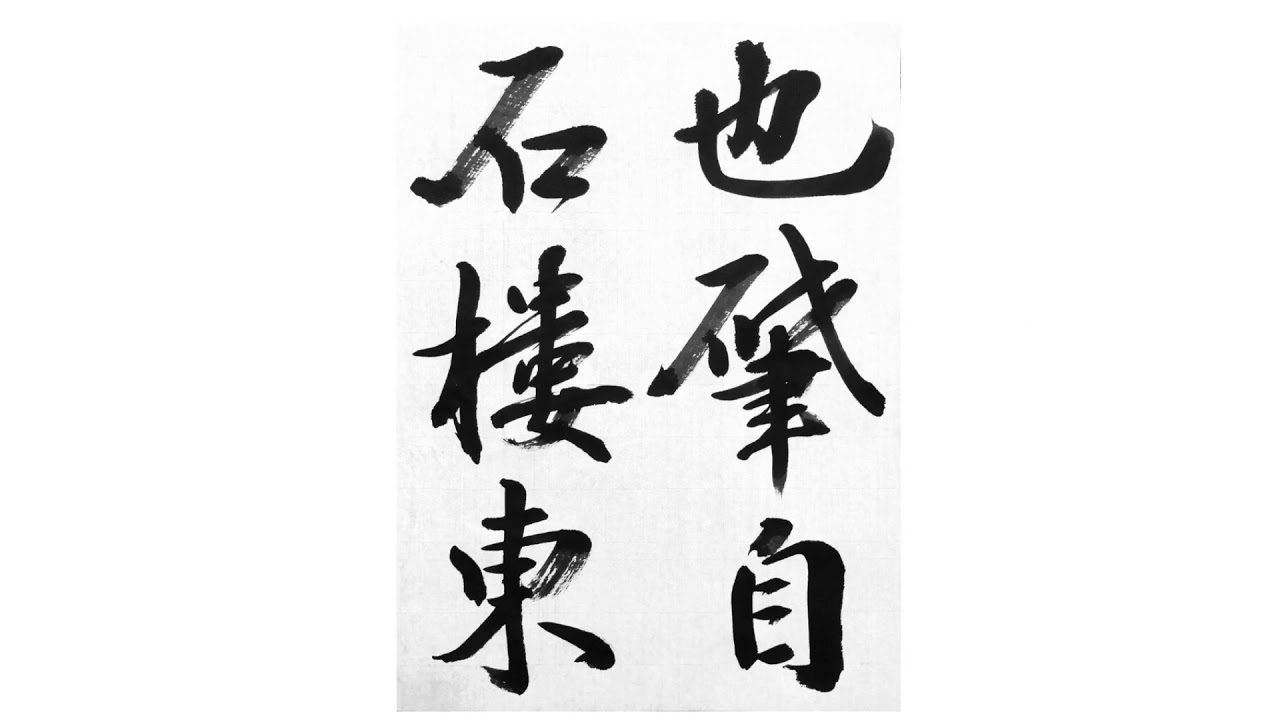 也肇自
石樓東